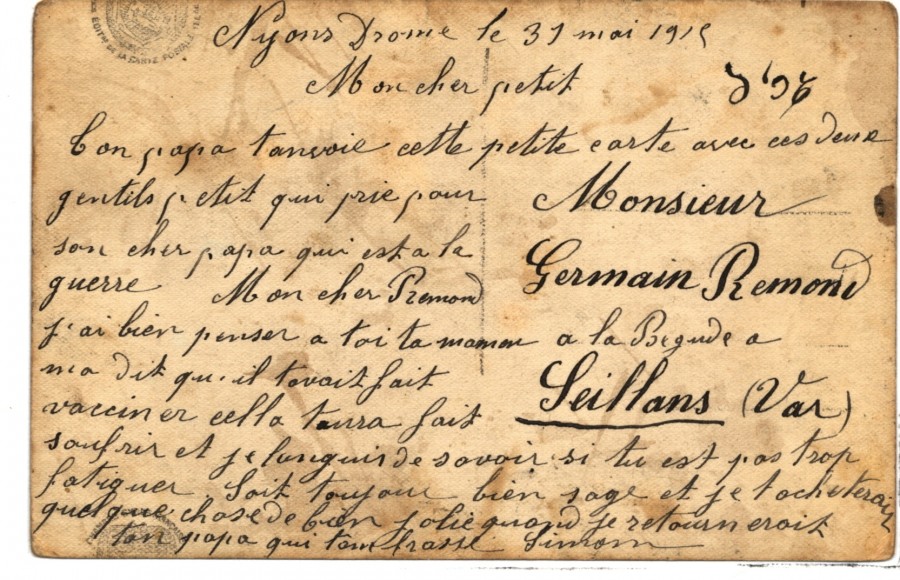 EDITION DE LA CARTE POSTALE
Nyons Drome le 31 mai 1915
Mon cher petit
Ton papa tanvoie cette petite carte avec ces deux
gentils petit qui prie pour
son cher papa qui est a la
guerre Mon cher Remond
j'ai bien penser a toi ta maman
ma dit qu'il tavait fait
vacciner cella taura fait
soufrir et je languis de savoir si tu est pas trop
fatiguer Soit toujour bien sage et je tacheterait
quelque chose de bien jolie quand je retourneroit
ton papa qui tambrasse Simon
Monsieur
Germain Remond
a la Begude a
Seillans (Var)